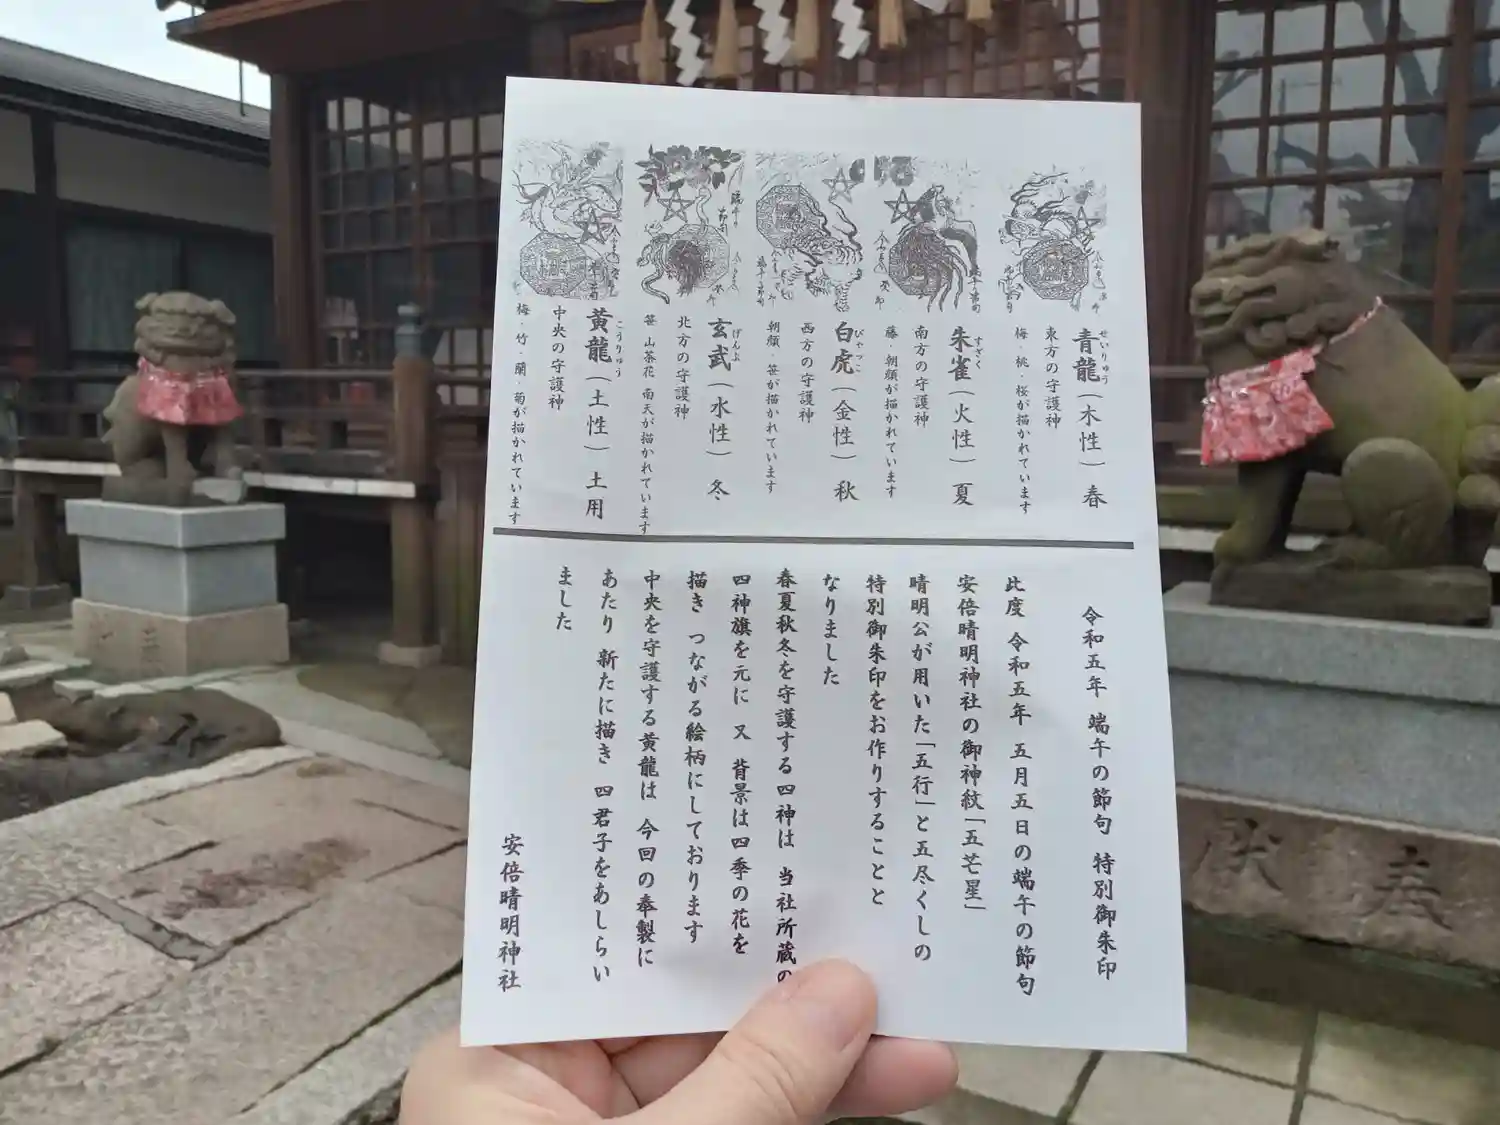 青龍（木性）春
せいりゅう
東方の守護神
梅・桃・桜が描かれています
朱雀（火性）夏
すざく
南方の守護神
藤・朝顔が描かれています
白虎（金性）秋
びゃっこ
西方の守護神
朝顔・笹が描かれています
玄武（水性）冬
げんぶ
北方の守護神
笹 山茶花 南天が描かれています
黄龍（土性）土用
こうりゅう
中央の守護神
梅・竹・蘭・菊が描かれています
令和五年 端午の節句 特別御朱印
此度 令和五年 五月五日の端午の節句
安倍晴明神社の御神紋「五芒星」
晴明公が用いた「五行」と五尽くしの
特別御朱印をお作りすることと
なりました
春夏秋冬を守護する四神は 当社所蔵の
四神旗を元に 又 背景は四季の花を
描き つながる絵柄にしております
中央を守護する黄龍は 今回の奉製に
あたり 新たに描き 四君子をあしらい
ました
安倍晴明神社